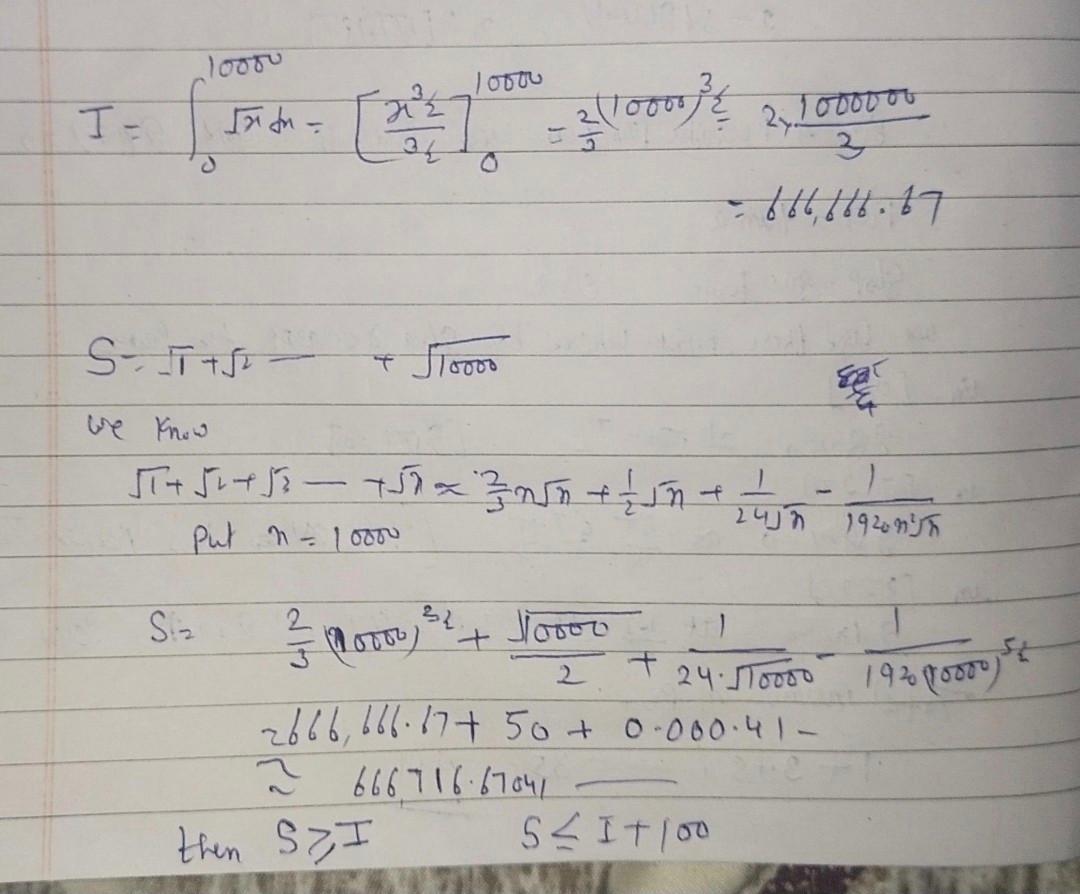 I = ∫₀^10000 √x dx = [x^3/2 / 3/2]₀^10000 = 2/3 (10000)^3/2 = 2×1000000/3
= 666,666.67
S = √1 + √2 — + √10000
we know
√1 + √2 + √3 — + √n ≈ 2/3 n√n + 1/2 √n + 1/24√n - 1/1920n²√n
Put n = 10000
S = 2/3 (10000)^3/2 + √10000/2 + 1/24·√10000 - 1/1920(10000)^5/2
≈ 666,666.67 + 50 + 0.000.41 -
≈ 666,716.67041 —
then S ≥ I S ≤ I + 100